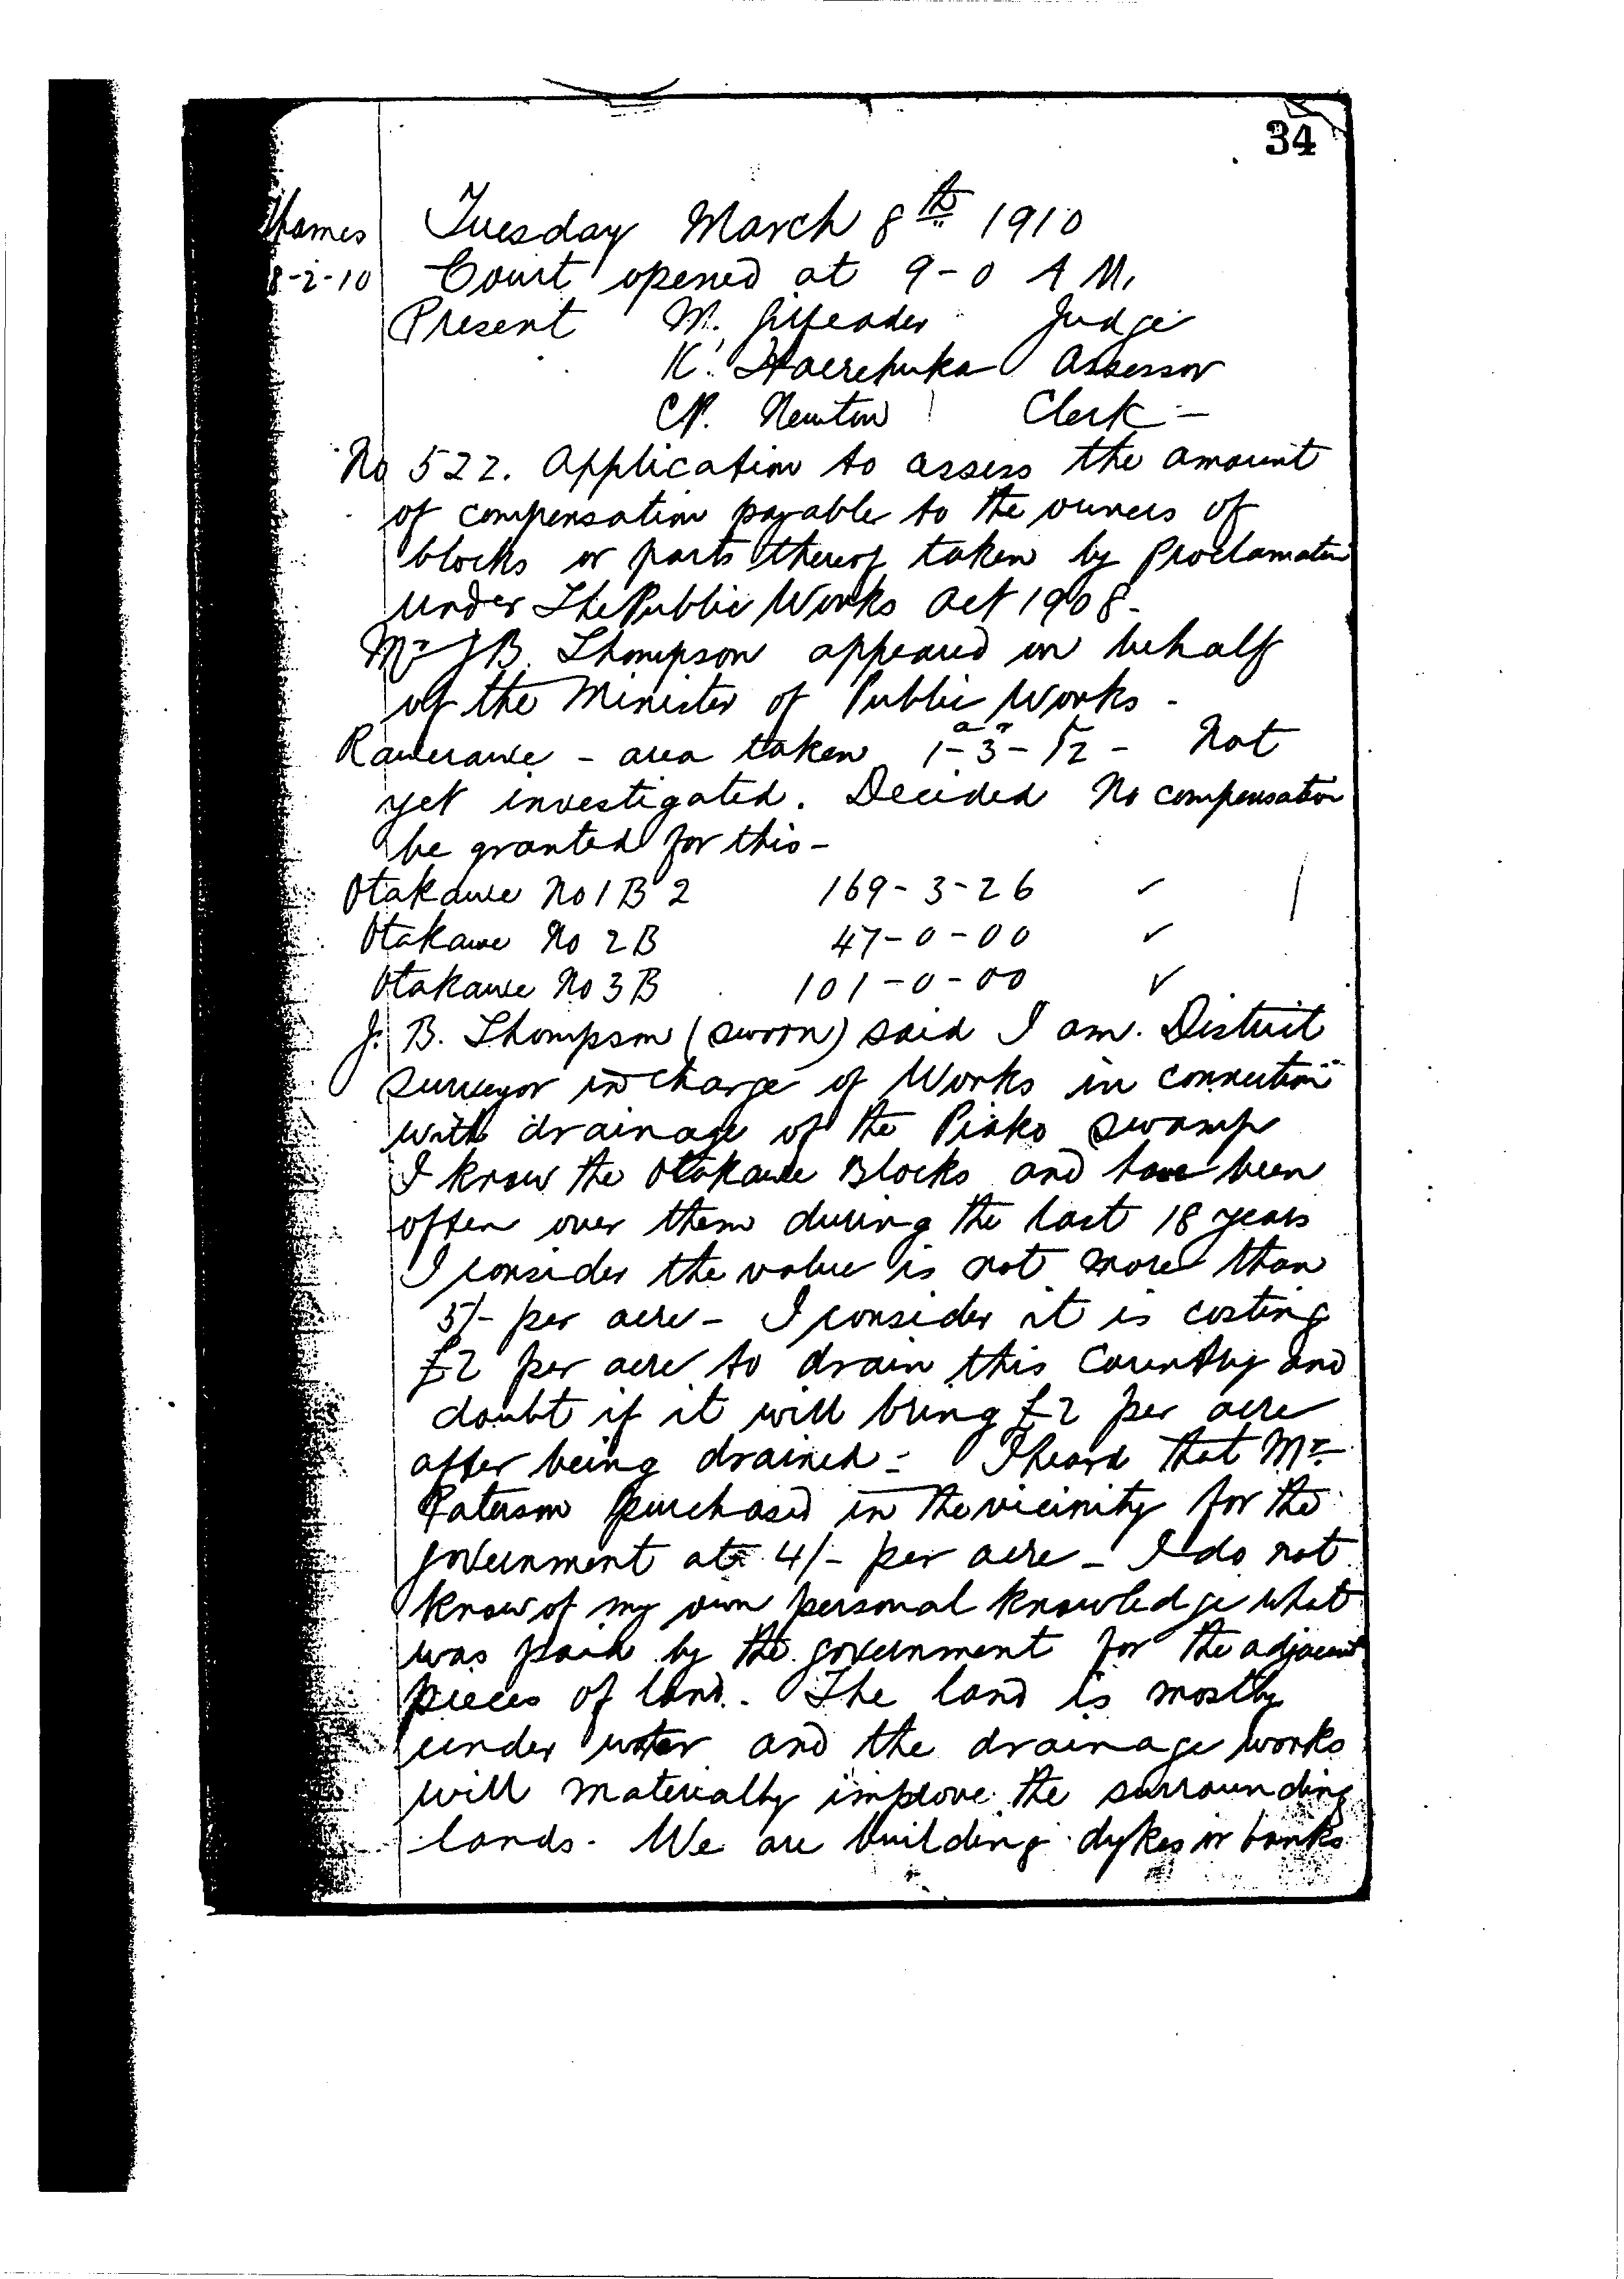 34
Thames
8-2-10
Tuesday March 8th 1910
Court opened at 9-0 A M.
Present M. Gilfeader Judge
K. Haerehuka Assessor
Newton Clerk -
No 522. Application to assess the amount
of compensation payable to the owners of
blocks or parts thereof taken by Proclamation
under The Public Works Act 1908-
Mr J B. Thompson appeared on behalf
of the Minister of Public Works -
- area taken 1-3- - Not
yet investigated. Decided No compensation
be granted for this -
Otakawe No 1 B 2 169-3-26 ✓
Otakawe No 2 B 47-0-00 ✓
Otakawe No 3 B 101-0-00 ✓
J. B. Thompson (sworn) said I am District
Surveyor in charge of Works in connection
with drainage of the Piako swamp
I know the Otakawe Blocks and have been
often over them during the last 18 years
I consider the value is not more than
5/- per acre - I consider it is costing
£2 per acre to drain this Country and
doubt if it will bring £2 per acre
after being drained - I heard that Mr
Paterson purchased in the vicinity for the
Government at 4/- per acre - I do not
know of my own personal knowledge what
was paid by the government for the adjacent
pieces of land. The land is mostly
under water and the drainage works
will materially improve the surrounding
lands. We are building dykes or banks